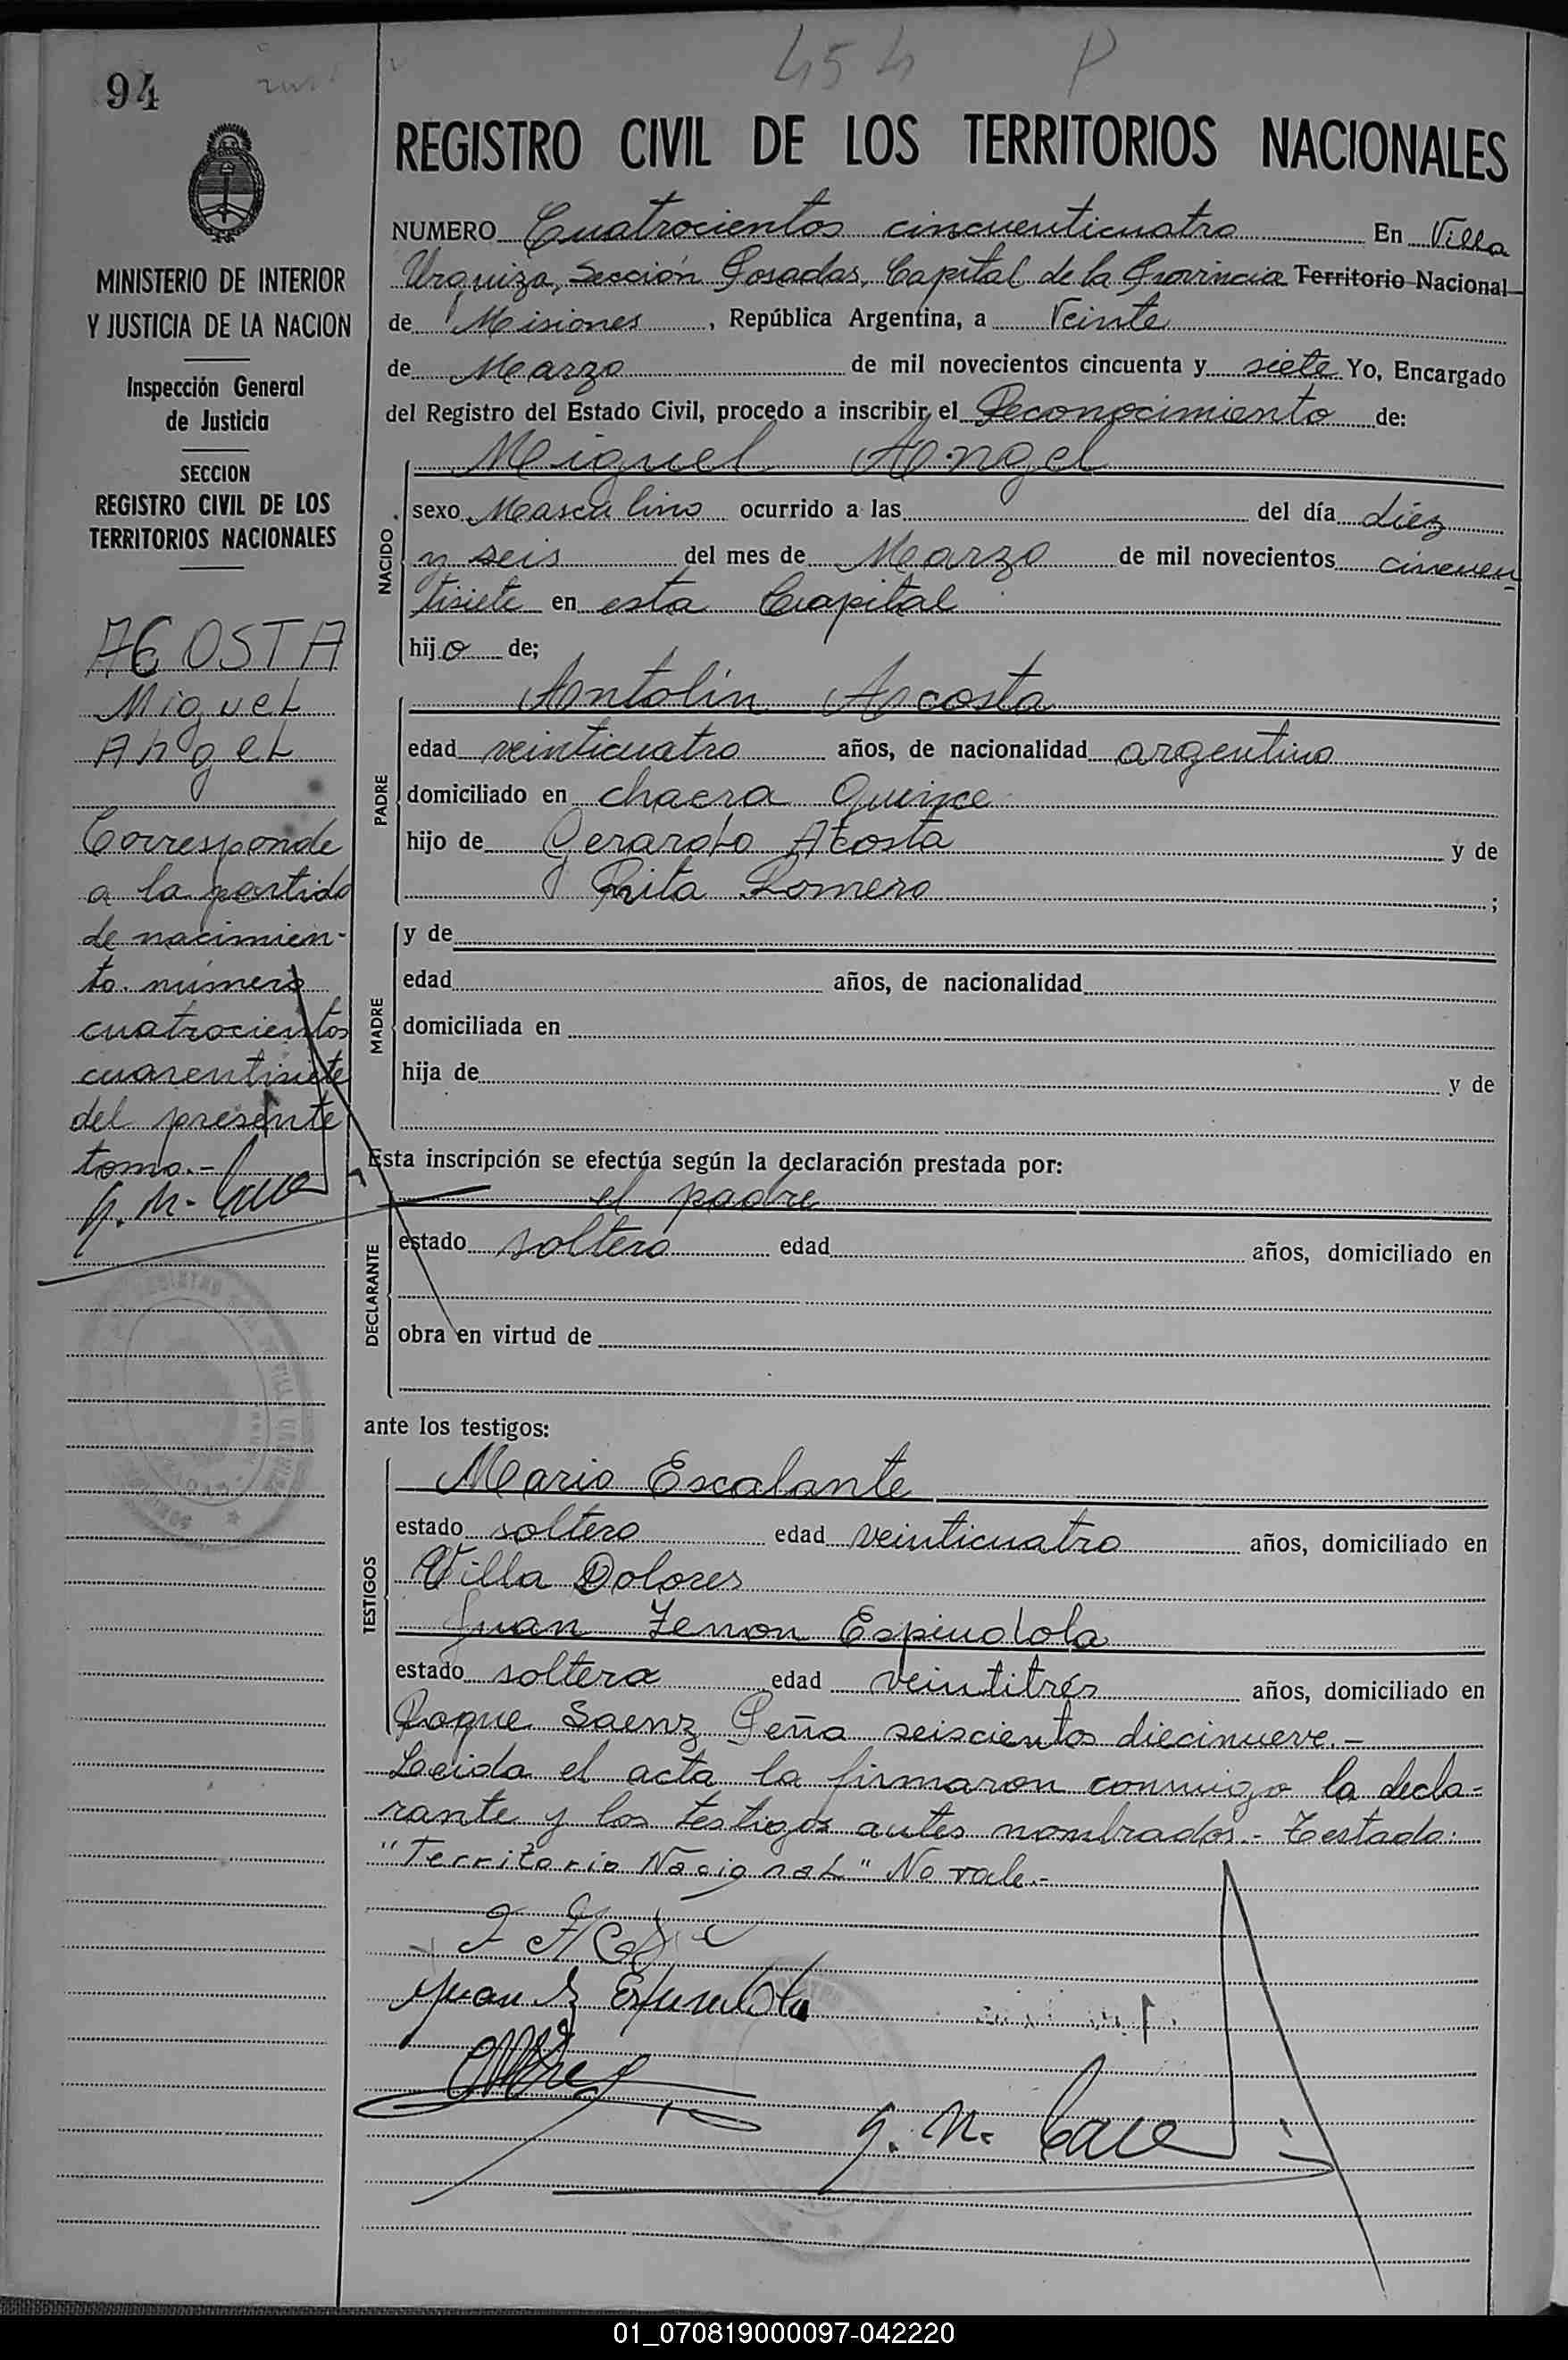 454 P
94
REGISTRO CIVIL DE LOS TERRITORIOS NACIONALES
MINISTERIO DE INTERIOR
Y JUSTICIA DE LA NACION
Inspección General
de Justicia
SECCION
REGISTRO CIVIL DE LOS
TERRITORIOS NACIONALES
ACOSTA
Miguel
Angel
Corresponde
a la partida
de nacimien-
to número
cuatrocientos
cuarentisiete
del presente
tomo.-
NUMERO Cuatrocientos cincuenticuatro En Villa
Urquiza, Sección Posadas, Capital de la Provincia Territorio Nacional
de Misiones, República Argentina, a Veinte
de Marzo de mil novecientos cincuenta y siete Yo, Encargado
del Registro del Estado Civil, procedo a inscribir el Reconocimiento de:
Miguel Angel
NACIDO
sexo Masculino ocurrido a las del día diez
y seis del mes de Marzo de mil novecientos cincuen
tisiete en esta Capital
hijo de;
Antolín Acosta
PADRE
edad veinticuatro años, de nacionalidad argentino
domiciliado en chacra Quince
hijo de Gerardo Acosta y de
Rita Romero ;
MADRE
y de
edad años, de nacionalidad
domiciliada en
hija de y de
Esta inscripción se efectúa según la declaración prestada por:
el padre
DECLARANTE
estado soltero edad años, domiciliado en
obra en virtud de
ante los testigos:
TESTIGOS
Mario Escalante
estado soltero edad veinticuatro años, domiciliado en
Villa Dolores
Juan Zenon Espindola
estado soltera edad veintitrés años, domiciliado en
Roque Saenz Peña seiscientos diecinueve.-
Leida el acta la firmaron conmigo la decla-
rante y los testigos antes nombrados.- Testado:
"Territorio Nacional" No vale.-
Juan Z Espindola
01_070819000097-042220